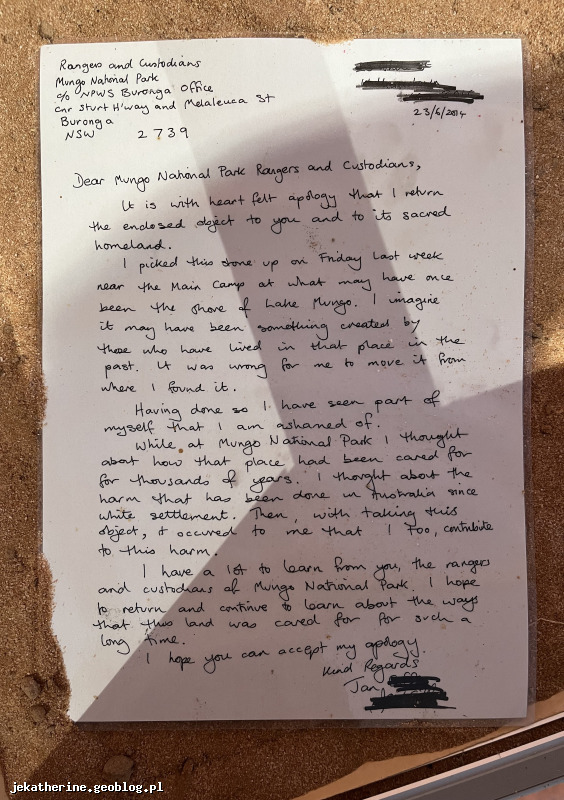 Rangers and Custodians
Mungo National Park
c/o NPWS Buronga Office
cnr Sturt H'way and Melaleuca St
Buronga
NSW 2739
23/6/2014
Dear Mungo National Park Rangers and Custodians,
It is with heart felt apology that I return
the enclosed object to you and to its sacred
homeland.
I picked this stone up on Friday last week
near the Main Camp at what may have once
been the shore of Lake Mungo. I imagine
it may have been something created by
those who have lived in that place in the
past. It was wrong for me to move it from
where I found it.
Having done so I have seen part of
myself that I am ashamed of.
While at Mungo National Park I thought
about how that place had been cared for
for thousands of years. I thought about the
harm that has been done in Australia since
white settlement. Then, with taking this
object, it occured to me that I too, contribute
to this harm.
I have a lot to learn from you, the rangers
and custodians of Mungo National Park. I hope
to return and continue to learn about the ways
that this land was cared for for such a
long time.
I hope you can accept my apology.
Kind Regards
Jan
jekatherine.geoblog.pl